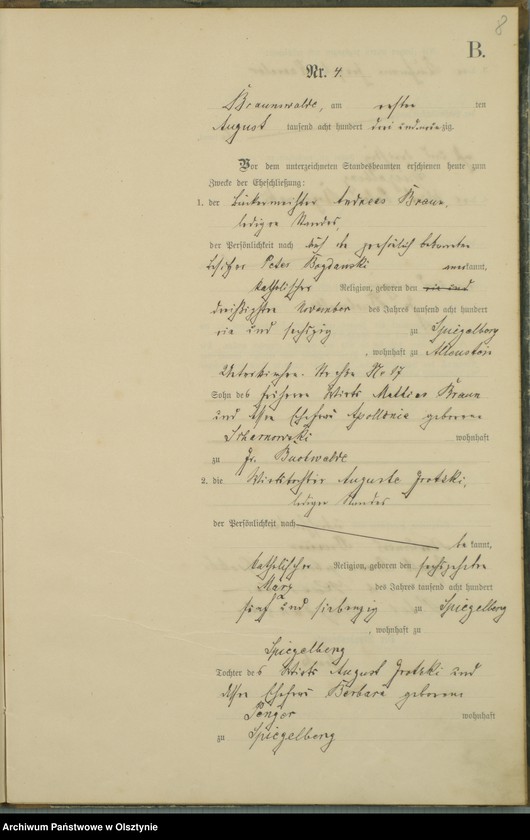 8
B.
Nr. 4.
Braunswalde, am ersten ten
August tausend acht hundert drei und neunzig.
Vor dem unterzeichneten Standesbeamten erschienen heute zum
Zwecke der Eheschließung:
1. der Bäckermeister Andreas Braun,
ledigen Standes,
der Persönlichkeit nach durch den persönlich bekannten
Besitzer Peter Bogdanski anerkannt,
katholischer Religion, geboren den
dreißigsten November des Jahres tausend acht hundert
vier und sechszig zu Spiegelberg
, wohnhaft zu Allenstein
Nr 87
Sohn des früheren Wirths Mathias Braun
und dessen Ehefrau Apollonia geborene
wohnhaft
zu Gr. Bartelsdorf
2. die Wirthstochter Auguste Grotzki,
ledigen Standes
der Persönlichkeit nach
bekannt,
katholischer Religion, geboren den sechszehnten
März des Jahres tausend acht hundert
fünf und siebenzig zu Spiegelberg
, wohnhaft zu
Spiegelberg
Tochter des Wirths August Grotzki und
dessen Ehefrau Barbara geborene
wohnhaft
zu Spiegelberg
Archiwum Państwowe w Olsztynie